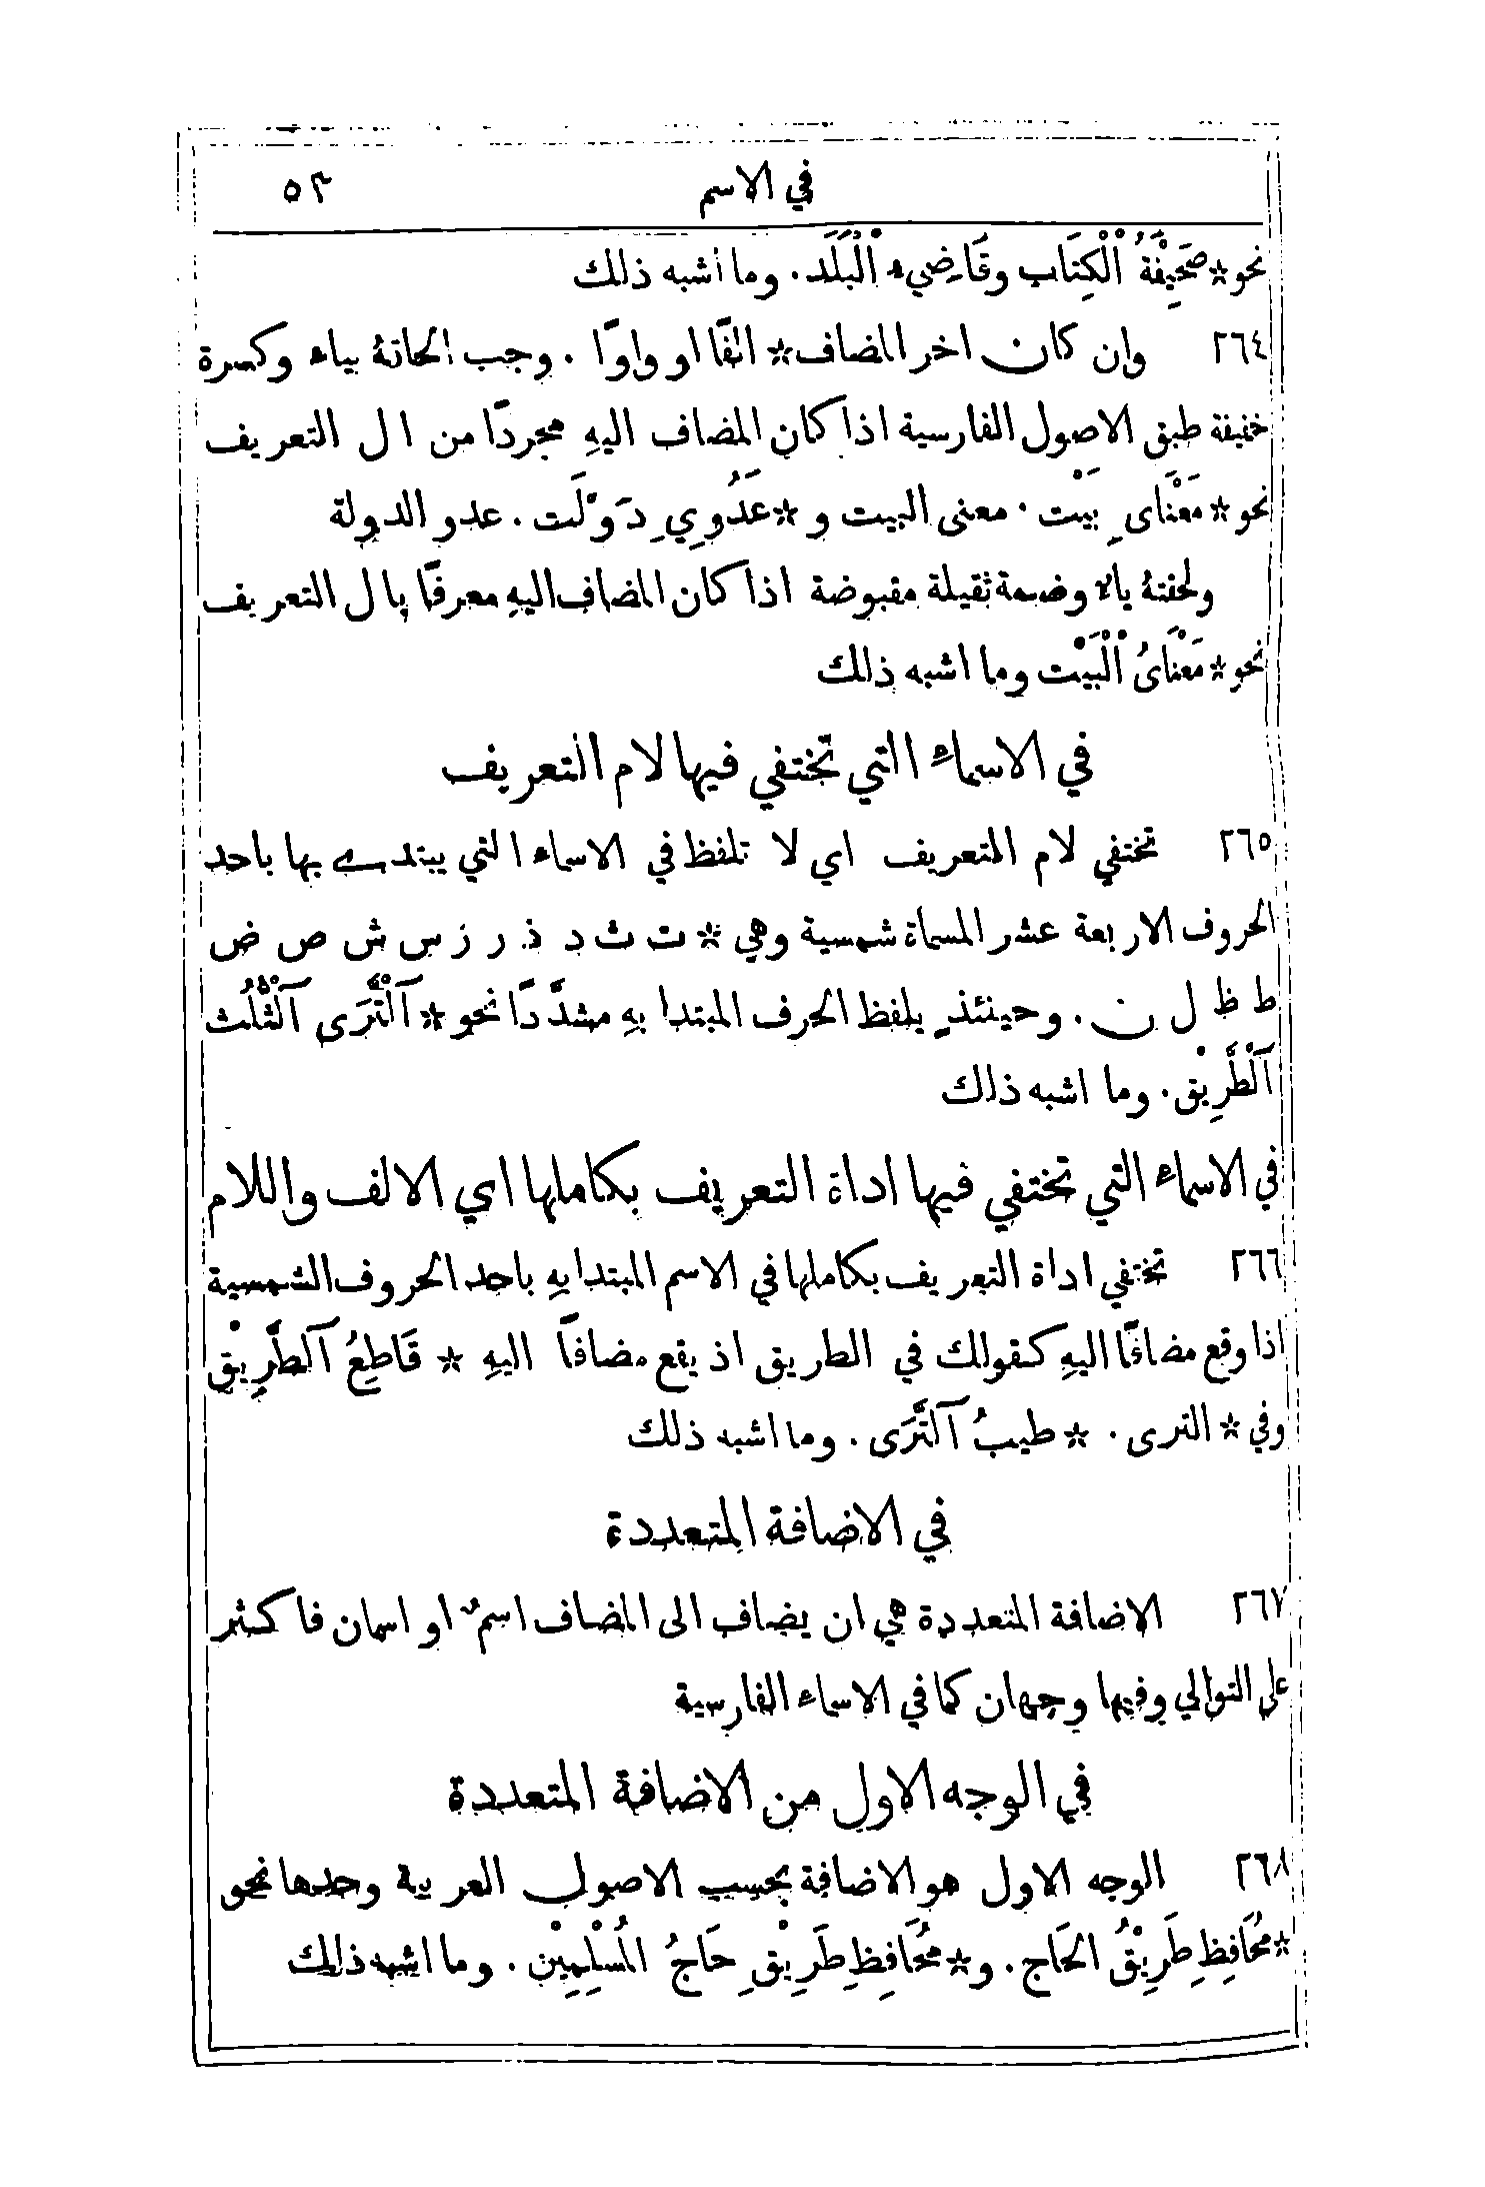 في الاسم ٥٣
نحو * صَحِيْفَةُ الْكِتَاب وقَاضِيء الْبَلَد . وما اشبه ذلك
٢٦٤ وان كان اخر المضاف * الفًا او واوًا . وجب الحاقهُ بياء وكسرة
خفيفة طبق الاصول الفارسية اذا كان المضاف اليهِ مجردًا من ال التعريف
نحو * مَعْنَايِ بَيْت . معنى البيت و * عَدُوِي دَوْلَت . عدو الدولة
ولحقتهُ ياء وضمة ثقيلة مقبوضة اذا كان المضاف اليهِ معرفًا بال التعريف
نحو * مَعْنَايُ الْبَيْت وما اشبه ذلك
في الاسماء التي تختفي فيها لام التعريف
٢٦٥ تختفي لام التعريف اي لا تلفظ في الاسماء التي يبتدى بها باحد
الحروف الاربعة عشر المسماة شمسية وهي * ت ث د ذ ر ز س ش ص ض
ط ظ ل ن . وحينئذٍ يلفظ الحرف المبتدا بهِ مشدَّدًا نحو * اَلْتَّرَى اَلْثُّلُث
اَلْطَّرِيْق . وما اشبه ذلك
في الاسماء التي تختفي فيها اداة التعريف بكاملها اي الالف واللام
٢٦٦ تختفي اداة التعريف بكاملها في الاسم المبتدا بهِ باحد الحروف الشمسية
اذا وقع مضافًا اليهِ كقولك في الطريق اذ يقع مضافًا اليهِ * قَاطِعُ اَلطَّرِيْق
وفي * الترى . * طيبُ اَلتَّرَى . وما اشبه ذلك
في الاضافة المتعددة
٢٦٧ الاضافة المتعددة هي ان يضاف الى المضاف اسمٌ او اسمان فاكثر
على التوالي وفيها وجهان كما في الاسماء الفارسية
في الوجه الاول من الاضافة المتعددة
٢٦٨ الوجه الاول هو الاضافة بحسب الاصول العربية وحدها نحو
* مُحَافِظِ طَرِيْقُ الحَاج . و * مُحَافِظِ طَرِيْقِ حَاجُ المُسْلِمِيْن . وما اشبه ذلك